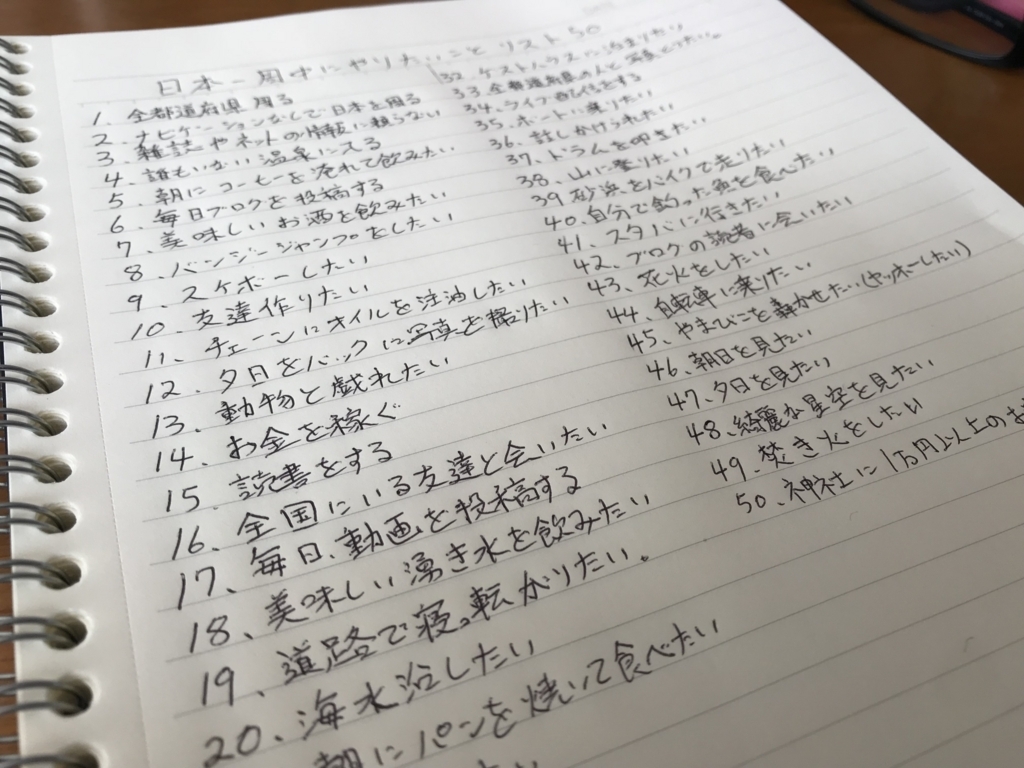 日本一周中にやりたいことリスト50
1. 全都道府県周る
2. ナビゲーションなしで日本を周る
3. 雑誌やネットの情報に頼らない
4. 誰もいない温泉に入る
5. 朝にコーヒーを淹れて飲みたい
6. 毎日ブログを投稿する
7. 美味しいお酒を飲みたい
8. バンジージャンプをしたい
9. スケボーしたい
10. 友達作りたい
11. チェーンにオイルを注油したい
12. 夕日をバックに写真を撮りたい
13. 動物と戯れたい
14. お金を稼ぐ
15. 読書をする
16. 全国にいる友達と会いたい
17. 毎日、動画を投稿する
18. 美味しい湧き水を飲みたい
19. 道路で寝っ転がりたい。
20. 海水浴したい
朝にパンを焼いて食べたい
32. ゲストハウスに泊まりたい
33. 全都道府県の人と写真とりたい。
34. ライブ配信をする
35. ボートに乗りたい
36. 話しかけられたい
37. ドラムを叩きたい
38. 山に登りたい
39. 砂浜をバイクで走りたい
40. 自分で釣った魚を食べたい
41. スタバに行きたい
42. ブログの読者に会いたい
43. 花火をしたい
44. 自転車に乗りたい
45. やまびこを轟かせたい(ヤッホーしたい)
46. 朝日を見たい
47. 夕日を見たい
48. 綺麗な星空を見たい
49. 焚き火をしたい
50. 神社に1万円以上のお